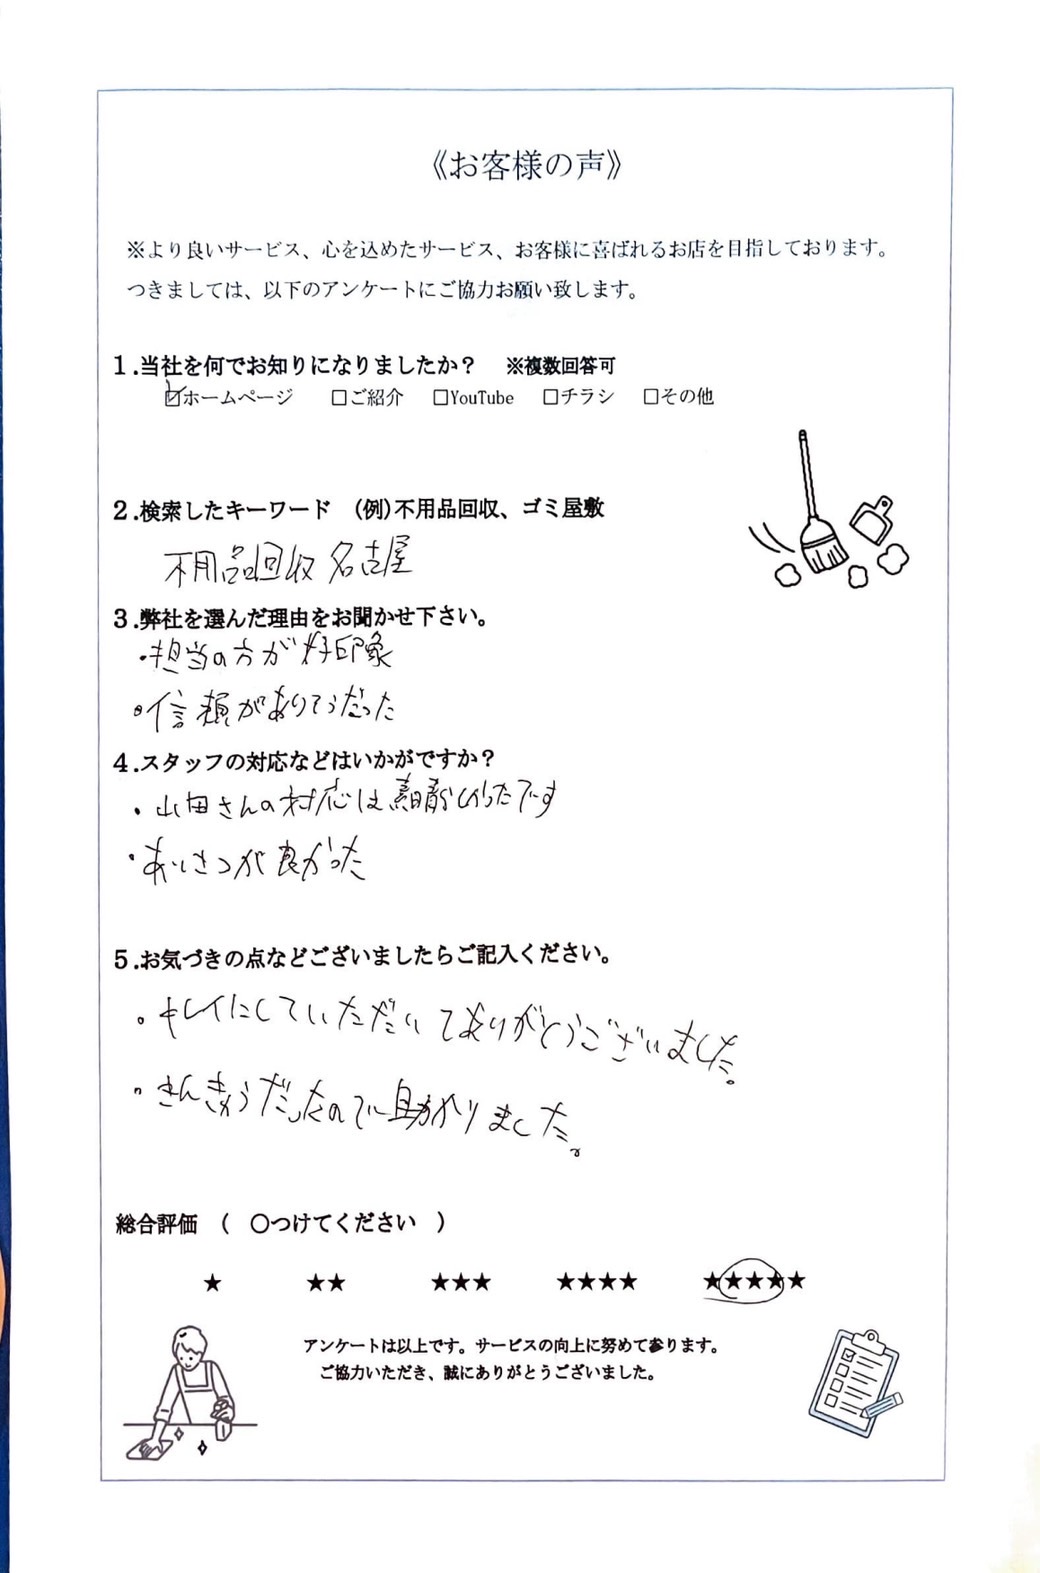 《お客様の声》
※より良いサービス、心を込めたサービス、お客様に喜ばれるお店を目指しております。
つきましては、以下のアンケートにご協力お願い致します。
1.当社を何でお知りになりましたか？　※複数回答可
☑ホームページ　□ご紹介　□YouTube　□チラシ　□その他
2.検索したキーワード　(例)不用品回収、ゴミ屋敷
不用品回収 名古屋
3.弊社を選んだ理由をお聞かせ下さい。
・担当の方が好印象
・信頼がありそうだった
4.スタッフの対応などはいかがですか？
・山田さんの対応は素敵でした
・あいさつが良かった
5.お気づきの点などございましたらご記入ください。
・キレイにしていただいてありがとうございました。
・きんきゅうだったので助かりました。
総合評価　(　○つけてください　)
★　★★　★★★　★★★★　★★★★★
アンケートは以上です。サービスの向上に努めて参ります。
ご協力いただき、誠にありがとうございました。